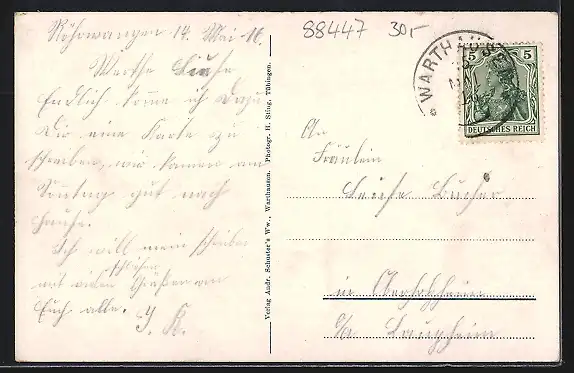 Röhrwangen 14. Mai 16.
Werthe Luise
Endlich komme ich dazu
Dir eine Karte zu
schreiben, wir kamen am
Sonntag gut nach
Hause.
Ich will mein schreiben
schließen
mit vielen Grüßen an
Euch alle. J. K.
Verlag Andr. Schuster's Ww., Warthausen. Photogr. H. Sting, Tübingen.
88447 30,-
WARTHAUSEN
5 5
DEUTSCHES REICH
An
Fräulein
Luise Bucher
in Oberholzheim
O/A Laupheim